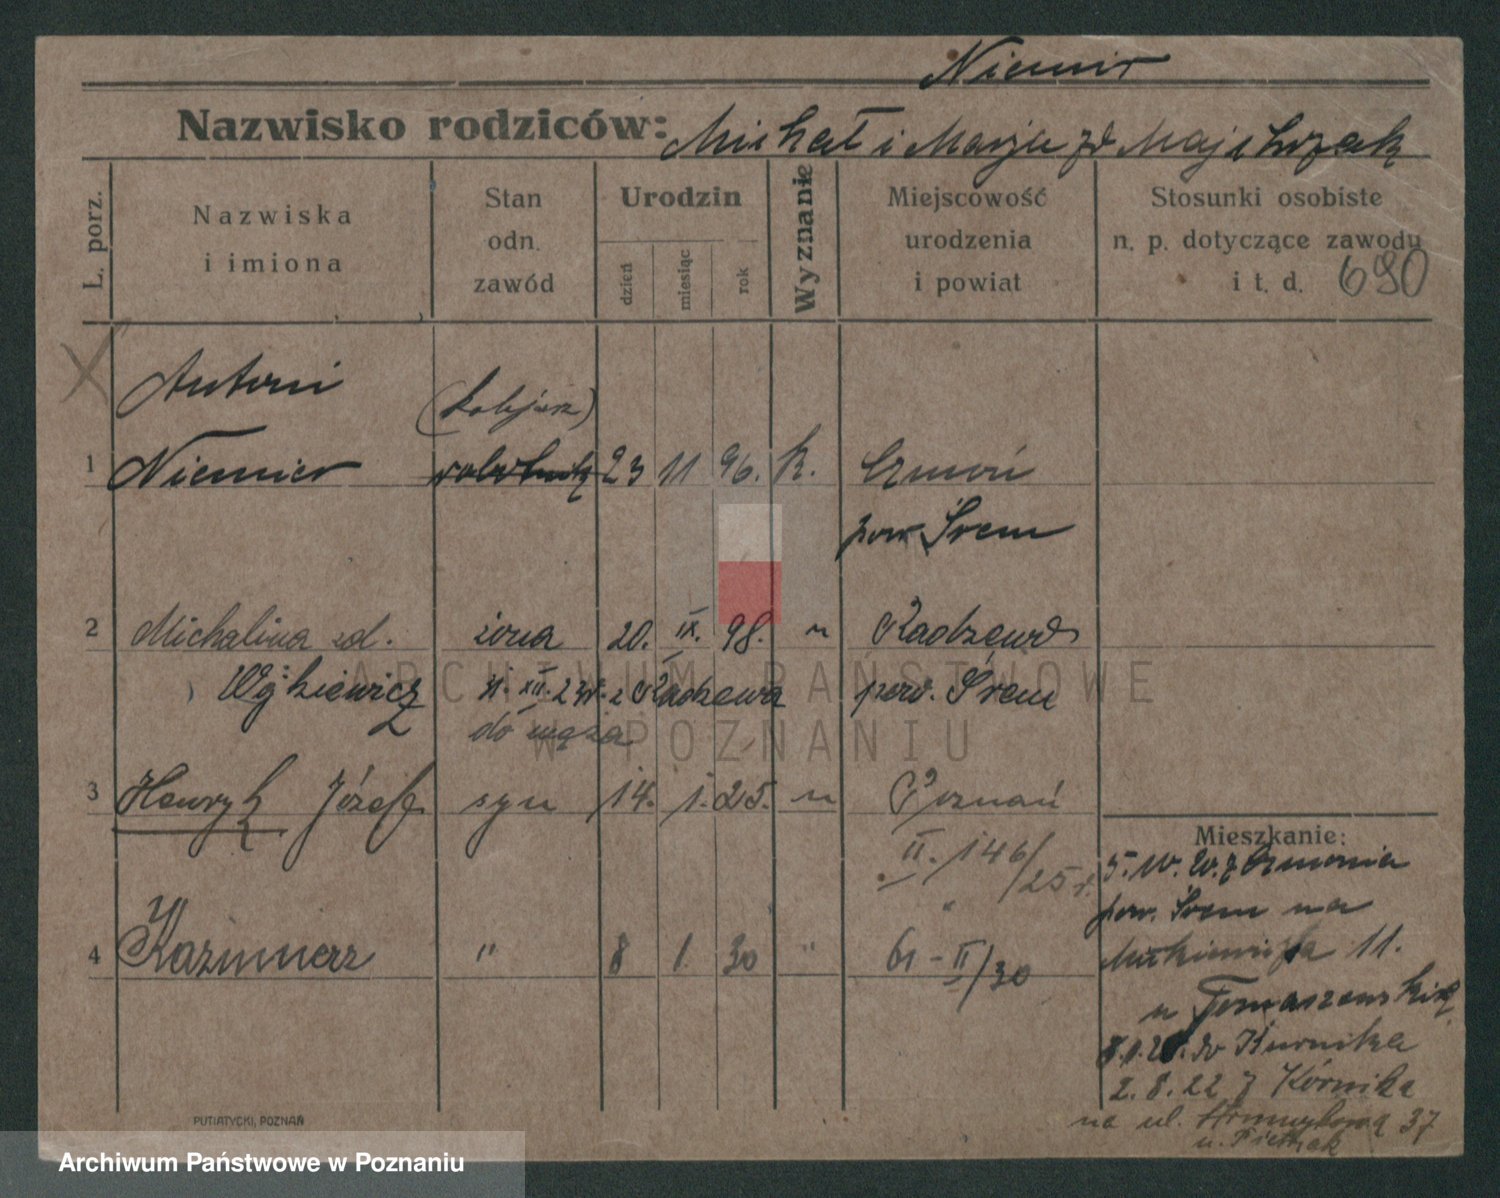 Niemir
Nazwisko rodziców: Michał i Marja zd Majchrzak
L. porz.
Nazwiska
i imiona
Stan
odn.
zawód
Urodzin
dzień
miesiąc
rok
Wyznanie
Miejscowość
urodzenia
i powiat
Stosunki osobiste
n. p. dotyczące zawodu
i t. d. 690
Antoni
(kolejarz)
1 Niemier robotnik 23 11 96. k. Czmoń
pow Śrem
2 Michalina zd. żona 20. IX. 98. " Radzewo
XII. 23r. z Radzewa pow. Śrem
do męża
3 Henryk Józef syn 14. 1. 25. " Poznań
II. 146/25 r.
Mieszkanie:
5. 10. 20. z Czmonia
pow. Śrem na
4 Kazimierz " 8 1. 30 " 61 - II/30
11.
u
do Kurnika
2. 8. 22 z Kórnika
na ul. 37
PUTIATYCKI, POZNAŃ
ARCHIWUM PAŃSTWOWE
W POZNANIU
Archiwum Państwowe w Poznaniu